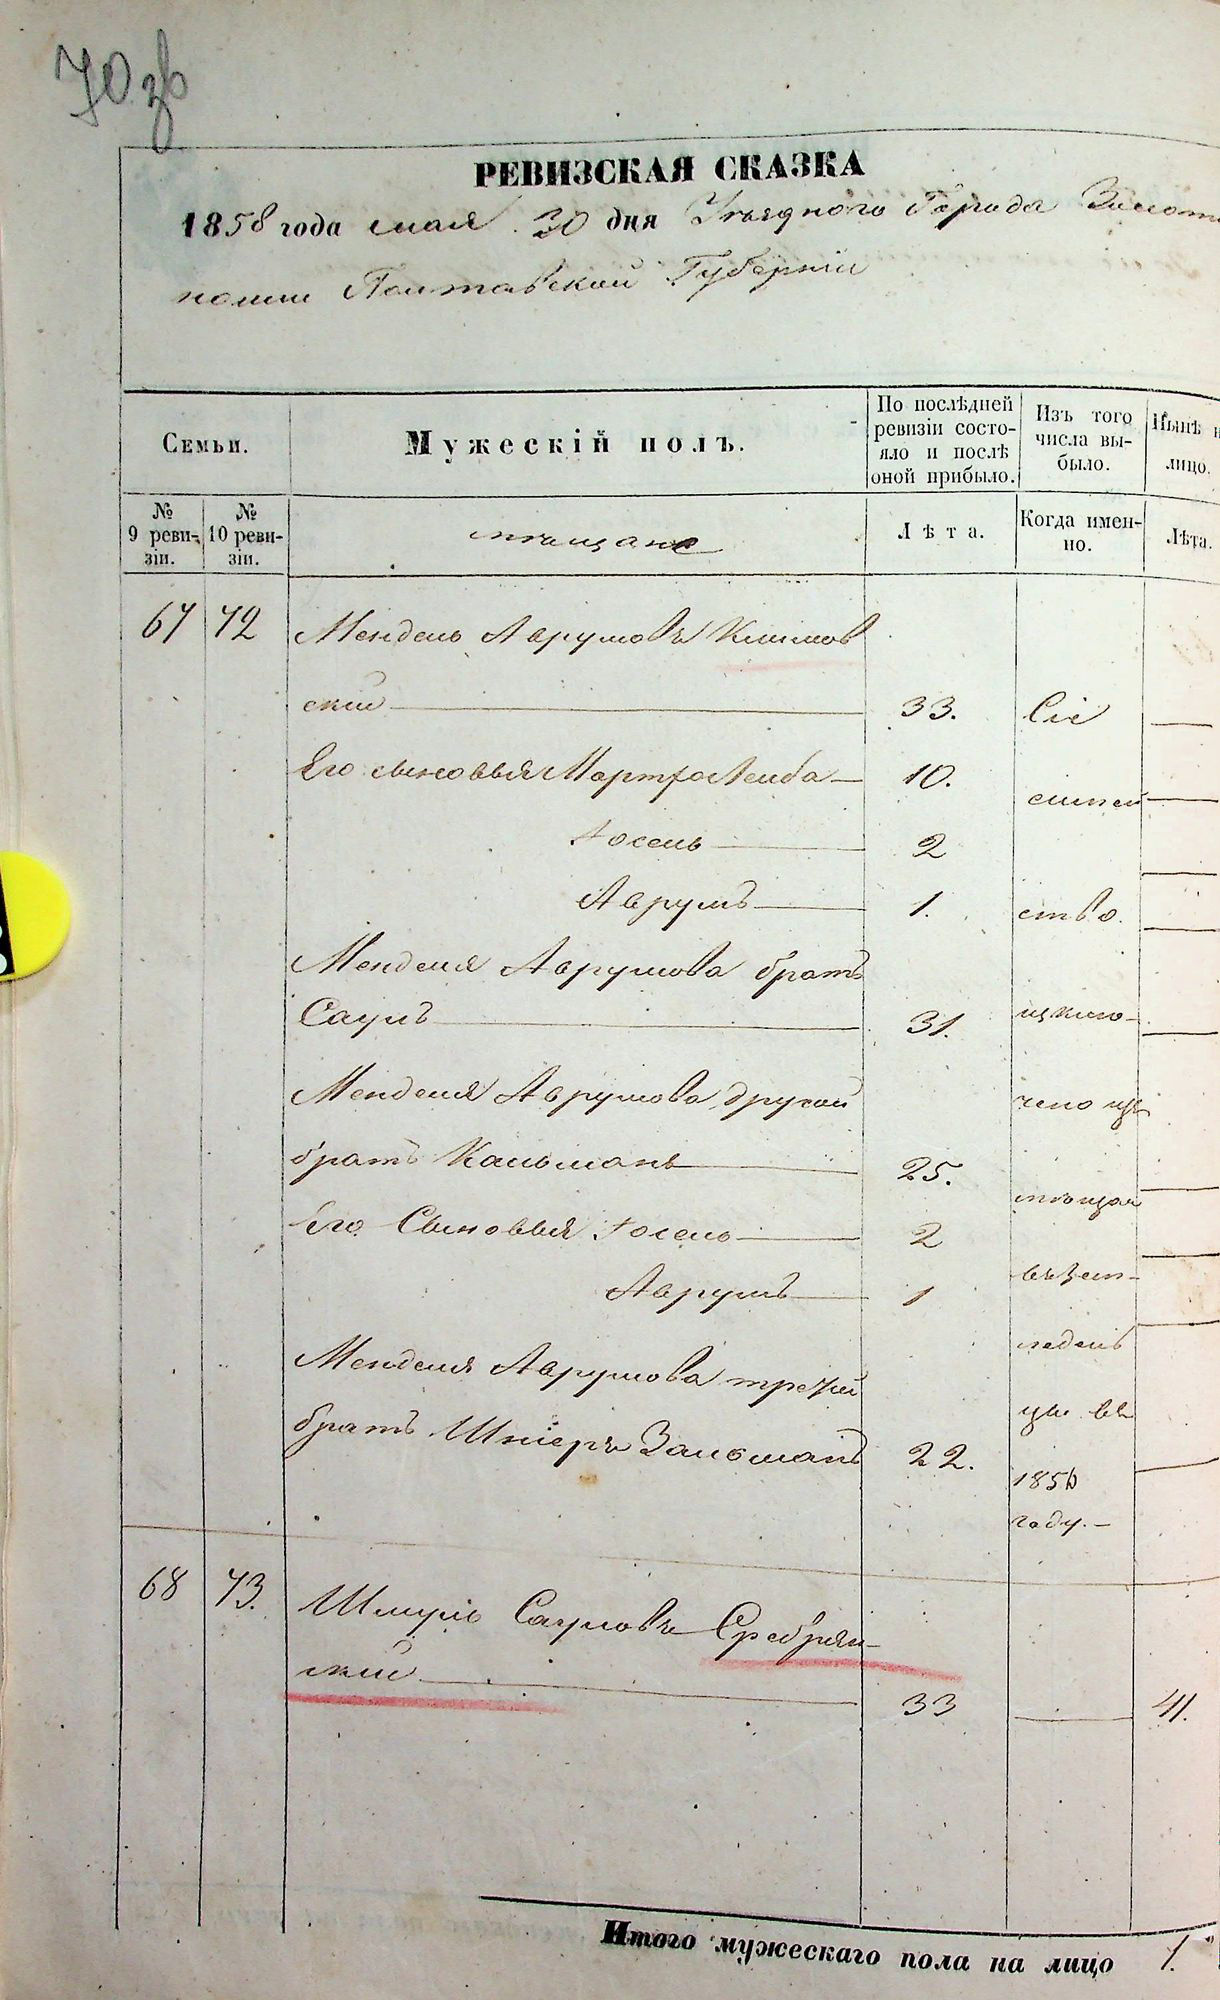 70 зв
РЕВИЗСКАЯ СКАЗКА
1858 года мая 30 дня Уѣзднаго Города Золото
ноши Полтавской Губерніи
Семьи.
Мужескій полъ.
По послѣдней ревизіи состояло и послѣ оной прибыло.
Изъ того числа выбыло.
Нынѣ н
лицо.
№ 9 ревизіи.
№ 10 ревизіи.
мѣщане
Лѣта.
Когда именно.
Лѣта.
67 72 Мендель Аврумовъ Климов
скій 33. Сіе
Его сыновья Мортхо Лейба 10. симей
Іосель 2
Аврумъ 1. ство
Менделя Аврумова братъ
Саулъ 31. исклю-
Менделя Аврумова другой чено изъ
братъ Кальманъ 25. мѣщан
Его Сыновья Іосель 2
Аврумъ 1 въ зем-
ледель
Менделя Аврумова третій
цы въ
братъ Шнеръ Зальманъ 22. 1850
году.
68 73. Шмуль Сауловъ Сребрян-
скій 33 41.
Итого мужескаго пола на лицо 1.